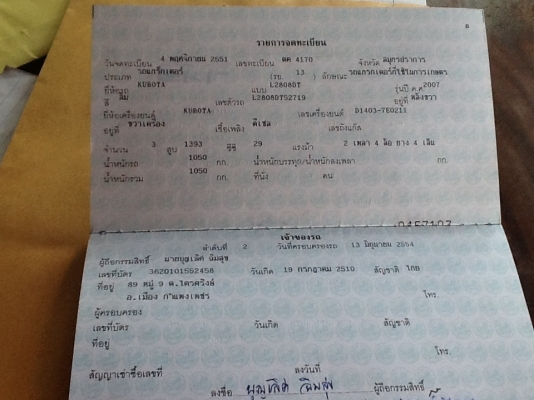 รายการจดทะเบียน
วันจดทะเบียน 4 พฤศจิกายน 2551 เลขทะเบียน ตค 4170 จังหวัด สมุทรปราการ
ประเภท รถแทรกเตอร์ (รย. 13 ) ลักษณะ รถแทรกเตอร์ที่ใช้ในการเกษตร
ยี่ห้อรถ KUBOTA แบบ L2808DT รุ่นปี ค.ศ 2007
สี ส้ม เลขตัวรถ L2808DT52719 อยู่ที่
ยี่ห้อเครื่องยนต์ KUBOTA เลขเครื่องยนต์ D1403-7E0211
อยู่ที่ ขวาเครื่อง เชื้อเพลิง ดีเซล เลขถังแก๊ส
จำนวน 3 สูบ 1393 ซีซี 29 แรงม้า 2 เพลา 4 ล้อ ยาง 4 เส้น
น้ำหนักรถ 1050 กก. น้ำหนักบรรทุก/น้ำหนักลงเพลา กก.
น้ำหนักรวม 1050 กก. ที่นั่ง คน
เจ้าของรถ
ลำดับที่ 2 วันที่ครอบครองรถ 13 มิถุนายน 2554
ผู้ถือกรรมสิทธิ์ นายบุญเลิศ ฉิมสุข
เลขที่บัตร 3620101552458 วันเกิด 19 กรกฎาคม 2510 สัญชาติ ไทย
ที่อยู่ 89 หมู่ 9 ต.ไตรตรึงษ์ โทร.
อ.เมือง กำแพงเพชร
ผู้ครอบครอง
เลขที่บัตร วันเกิด สัญชาติ
ที่อยู่ โทร.
สัญญาเช่าซื้อเลขที่ ลงวันที่
ลงชื่อ บุญเลิศ ฉิมสุข ผู้ถือกรรมสิทธิ์